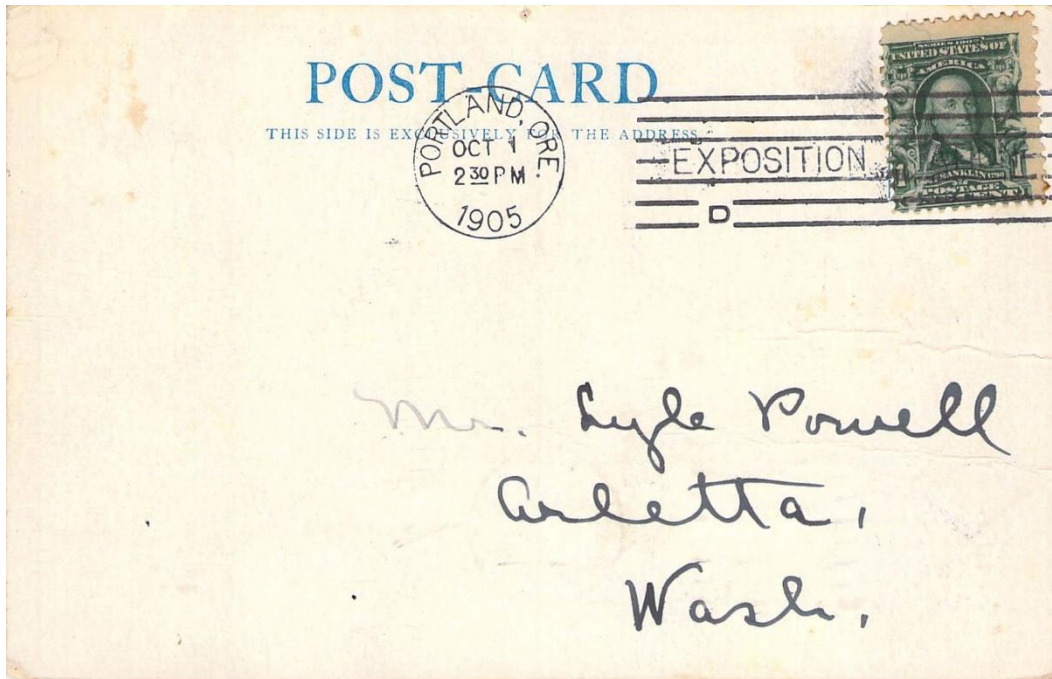 POST-CARD
THIS SIDE IS EXCLUSIVELY FOR THE ADDRESS.
PORTLAND, ORE.
OCT 1
2 30 PM
1905
EXPOSITION
D
SERIES 1902
UNITED STATES OF
AMERICA
FRANKLIN
POSTAGE
Mr. Lyle Powell
Arletta,
Wash.